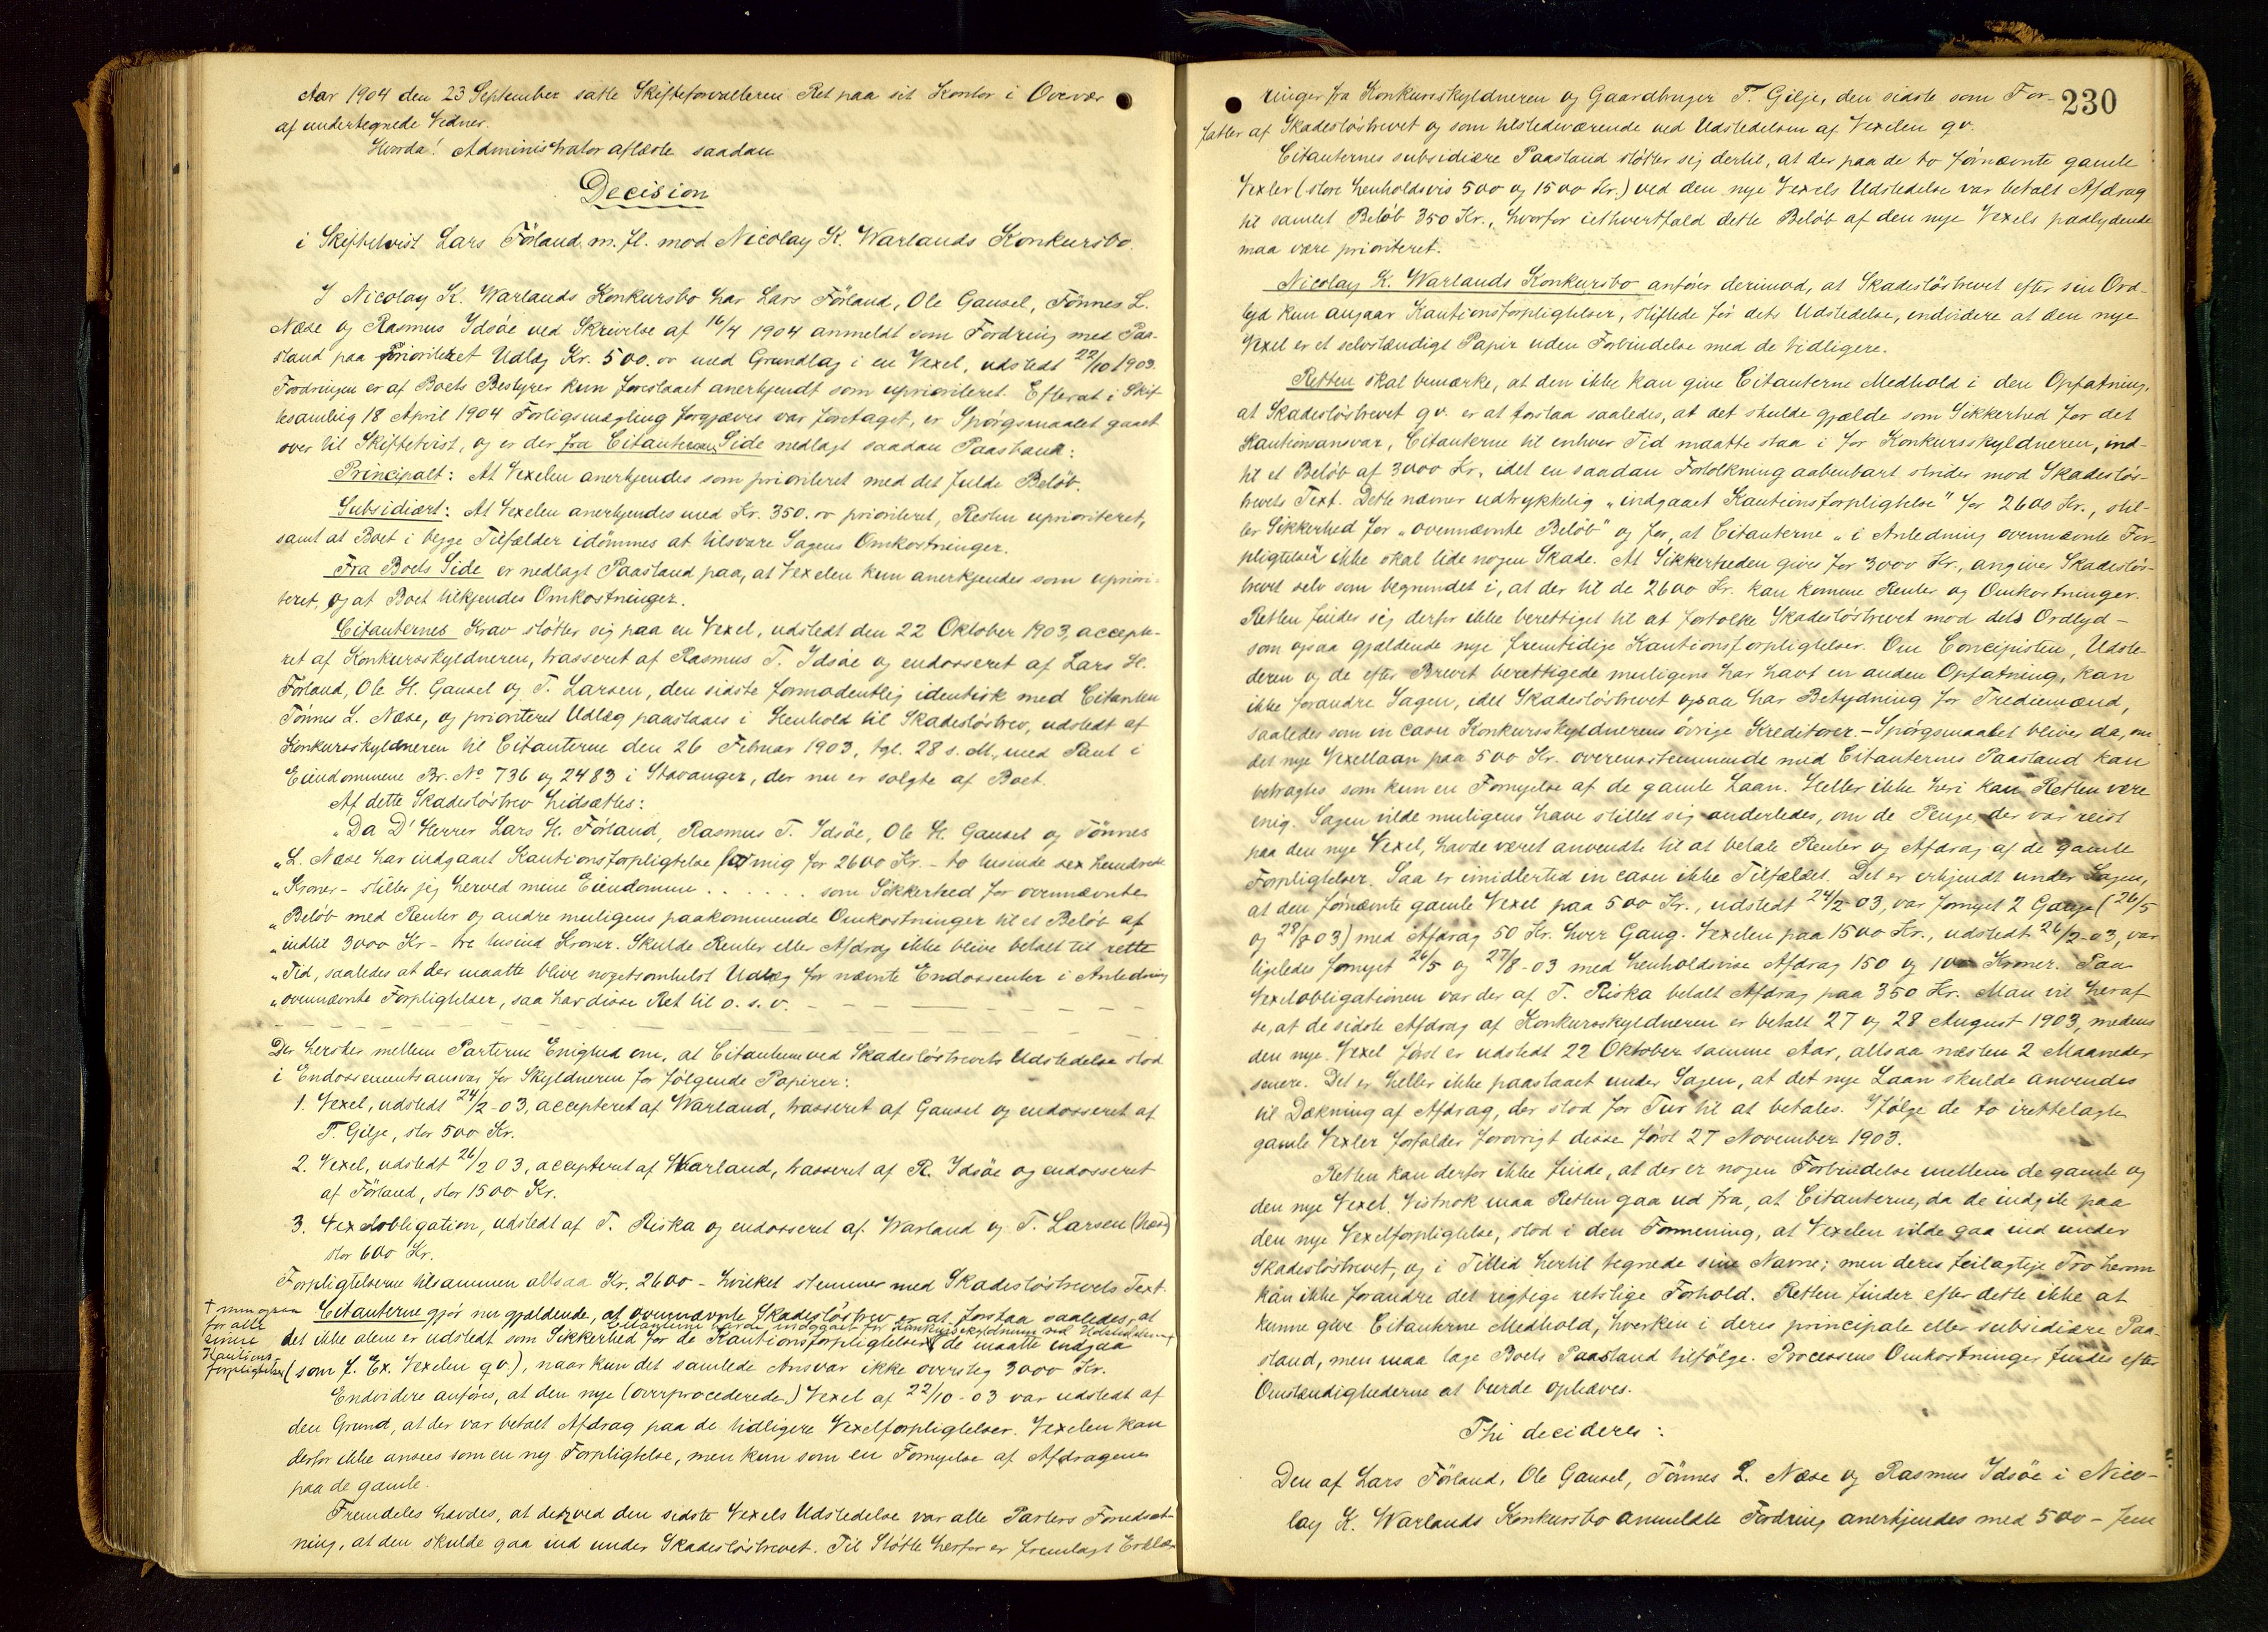 Aar 1904 den 23 September satte Skifteforvalteren Ret paa sit Kontor i Overvær
af undertegnede Vidner.
Hvorda! Administrator aflæste saadan
Decision
i Skiftetvist Lars Förland m. fl. mod Nicolay K. Warlands Konkursbo.
I Nicolay K. Warlands Konkursbo har Lars Förland, Ole Gausel, Tönnes L.
Næse og Rasmus Idsöe ved Skrivelse af 16/4 1904 anmeldt som Fordring med Paa-
stand paa prioriteret Udlæg Kr. 500.00 med Grundlag i en Vexel, udstedt 22/10 1903.
Fordringen er af Boets Bestyrer kun foreslaaet anerkjendt som uprioriteret. Efterat i Skif
tesamling 18 April 1904 Forligsmægling forgjæves var foretaget, er Spörgsmaalet gaaet
over til Skiftetvist, og er der fra Citanternes Side nedlagt saadan Paastand:
Principalt: At Vexelen anerkjendes som prioriteret med det fulde Belöb.
Subsidiært: At Vexelen anerkjendes med Kr. 350.00 prioriteret, Resten uprioriteret,
samt at Boet i begge Tilfælder idömmes at tilsvare Sagens Omkostninger.
Fra Boets Side er nedlagt Paastand paa, at Vexelen kun anerkjendes som upriori-
teret, og at Boet tilkjendes Omkostninger.
Citanternes Krav stötter sig paa en Vexel, udstedt den 22 Oktober 1903, accepte-
ret af Konkursskyldneren, trasseret af Rasmus T. Idsöe og endosseret af Lars H.
Förland, Ole H. Gausel og T. Larsen, den sidste formodentlig identisk med Citanten
Tönnes L. Næse, og prioriteret Udlæg paastaaes i Henhold til Skadeslösbrev, udstedt af
Konkursskyldneren til Citanterne den 26 Februar 1903, tgl. 28 s. M., med Pant i
Eiendommene Br. No 736 og 2483 i Stavanger, der nu er solgte af Boet.
Af dette Skadeslösbrev hidsættes:
"Da D' Herrer Lars H. Förland, Rasmus T. Idsöe, Ole H. Gausel og Tönnes
"L. Næse har indgaaet Kautionsforpligtelse for mig for 2600 Kr. - to tusinde sex hundrede
"Kroner - stiller jeg herved mine Eiendomme . . . . . . som Sikkerhed for ovennævnte
"Belöb med Renter og andre muligens paakommende Omkostninger til et Belöb af
"indtil 3000 Kr - tre tusind Kroner. Skulde Renter eller Afdrag ikke blive betalt til rette
"Tid, saaledes at der maatte blive nogetsomhelst Udlæg for nævnte Endossenter i Anledning
"ovennævnte Forpligtelser, saa har disse Ret til o. s. v. - - - - - - -
- - - - - - - - - - - - - - -
Der hersker mellem Parterne Enighed om, at Citanterne ved Skadeslösbrevets Udstedelse stod
i Endossementsansvar for Skyldneren for fölgende Papirer:
1. Vexel, udstedt 24/2-03, accepteret af Warland, trasseret af Gausel og endosseret af
T. Gilje, stor 500 Kr.
2. Vexel, udstedt 26/2 03, accepteret af Warland, trasseret af R. Idsöe og endosseret
af Förland, stor 1500 Kr.
3. Vexelobligation, udstedt af T. Riska og endosseret af Warland og T. Larsen (Næse)
stor 600 Kr.
Forpligtelserne tilsammen altsaa Kr. 2600 - hvilket stemmer med Skadeslösbrevets Text.
Citanterne gjör nu gjældende, at ovennævnte Skadeslösbrev er at forstaa saaledes, at
det ikke alene er udstedt som Sikkerhed for de Kautionsforpligtelser Citanterne havde indgaaet for Konkursskyldneren ved Udstedelsen + de maatte indgaa
+ men ogsaa for alle senere Kautions-forpligtelser
(som f. Ex. Vexelen qv.), naar kun det samlede Ansvar ikke oversteg 3000 Kr.
Endvidere anföres, at den nye (overprocederede) Vexel af 22/10-03 var udstedt af
den Grund, at der var betalt Afdrag paa de tidligere Vexelforpligtelser. Vexelen kan
derfor ikke ansees som en ny Forpligtelse, men kun som en Fornyelse af Afdragene
paa de gamle.
Fremdeles hævdes, at det ved den sidste Vexels Udstedelse var alle Parters Forudsæt
ning, at den skulde gaa ind under Skadeslösbrevet. Til Stötte herfor er fremlagt Erklæ
230
ringer fra Konkursskyldneren og Gaardbruger T. Gilje, den sidste som For-
fatter af Skadeslösbrevet og som tilstedeværende ved Udstedelsen af Vexelen qv.
Citanternes subsidiære Paastand stötter sig dertil, at der paa de to fornævnte gamle
Vexler (store henholdsvis 500 og 1500 Kr.) ved den nye Vexels Udstedelse var betalt Afdrag
til samlet Belöb 350 Kr., hvorfor iethvertfald dette Belöb af den nye Vexels paalydende
maa være prioriteret.
Nicolay K. Warlands Konkursbo anförer derimod, at Skadeslösbrevet efter sin Ord-
lyd kun angaar Kautionsforpligtelser, stiftede för dets Udstedelse, endvidere at den nye
Vexel er et selvstændigt Papir uden Forbindelse med de tidligere.
Retten skal bemærke, at den ikke kan give Citanterne Medhold i den Opfatning,
at Skadeslösbrevet qv. er at forstaa saaledes, at det skulde gjælde som Sikkerhed for det
Kautionsansvar, Citanterne til enhver Tid maatte staa i for Konkursskyldneren, ind-
til et Belöb af 3000 Kr., idet en saadan Fortolkning aabenbart strider mod Skadeslös-
brevets Text. Dette nævner udtrykkelig "indgaaet Kautionsforpligtelse" for 2600 Kr., stil-
ler Sikkerhed for "ovennævnte Belöb" og for, at Citanterne "i Anledning ovennævnte For-
pligtelser" ikke skal lide nogen Skade. At Sikkerheden gives for 3000 Kr., angives Skadeslös-
brevet selv som begrundet i, at der til de 2600 Kr. kan komme Renter og Omkostninger.
Retten finder sig derfor ikke berettiget til at fortolke Skadeslösbrevet mod dets Ordlyd -
som ogsaa gjældende nye fremtidige Kautionsforpligtelser. Om Concipisten, Udste-
deren og de efter Brevet berettigede muligens har havt en anden Opfatning, kan
ikke forandre Sagen, idet Skadeslösbrevet ogsaa har Betydning for Trediemænd,
saaledes som in casu Konkursskyldnerens övrige Kreditorer. - Spörgsmaalet bliver da, om
det nye Vexellaan paa 500 Kr. overensstemmende med Citanternes Paastand kan
betragtes som kun en Fornyelse af de gamle Laan. Heller ikke heri kan Retten være
enig. Sagen vilde muligens have stillet sig anderledes, om de Penge, der var reist
paa den nye Vexel, havde været anvendte til at betale Renter og Afdrag af de gamle
Forpligtelser. Saa er imidlertid in casu ikke Tilfældet. Det er erkjendt under Sagen,
at den fornævnte gamle Vexel paa 500 Kr., udstedt 24/2 03, var fornyet 2 Gange (26/5
og 28/8 03) med Afdrag 50 Kr. hver Gang. Vexelen paa 1500 Kr., udstedt 26/2-03, var
ligeledes fornyet 26/5 og 27/8-03 med henholdsvise Afdrag 150 og 100 Kroner. Paa
Vexelobligationen var der af T. Riska betalt Afdrag paa 350 Kr. Man vil heraf
se, at de sidste Afdrag af Konkursskyldneren er betalt 27 og 28 August 1903, medens
den nye Vexel först er udstedt 22 Oktober samme Aar, altsaa næsten 2 Maaneder
senere. Det er heller ikke paastaaet under Sagen, at det nye Laan skulde anvendes
til Dækning af Afdrag, der stod for Tur til at betales. Ifölge de to irettelagte
gamle Vexler forfalder forövrigt disse först 27 November 1903.
Retten kan derfor ikke finde, at der er nogen Forbindelse mellem de gamle og
den nye Vexel. Vistnok maa Retten gaa ud fra, at Citanterne, da de indgik paa
den nye Vexelforpligtelse, stod i den Formening, at Vexelen vilde gaa ind under
Skadeslösbrevet, og i Tillid hertil tegnede sine Navne; men deres feilagtige Tro herom
kan ikke forandre det rigtige retslige Forhold. Retten finder efter dette ikke at
kunne give Citanterne Medhold, hverken i deres principale eller subsidiære Paa-
stand, men maa tage Boets Paastand tilfölge. Processens Omkostninger findes efter
Omstændighederne at burde ophæves.
Thi decideres:
Den af Lars Förland, Ole Gausel, Tönnes L. Næse og Rasmus Idsöe i Nico-
lay K. Warlands Konkursbo anmeldte Fordring anerkjendes med 500 - fem